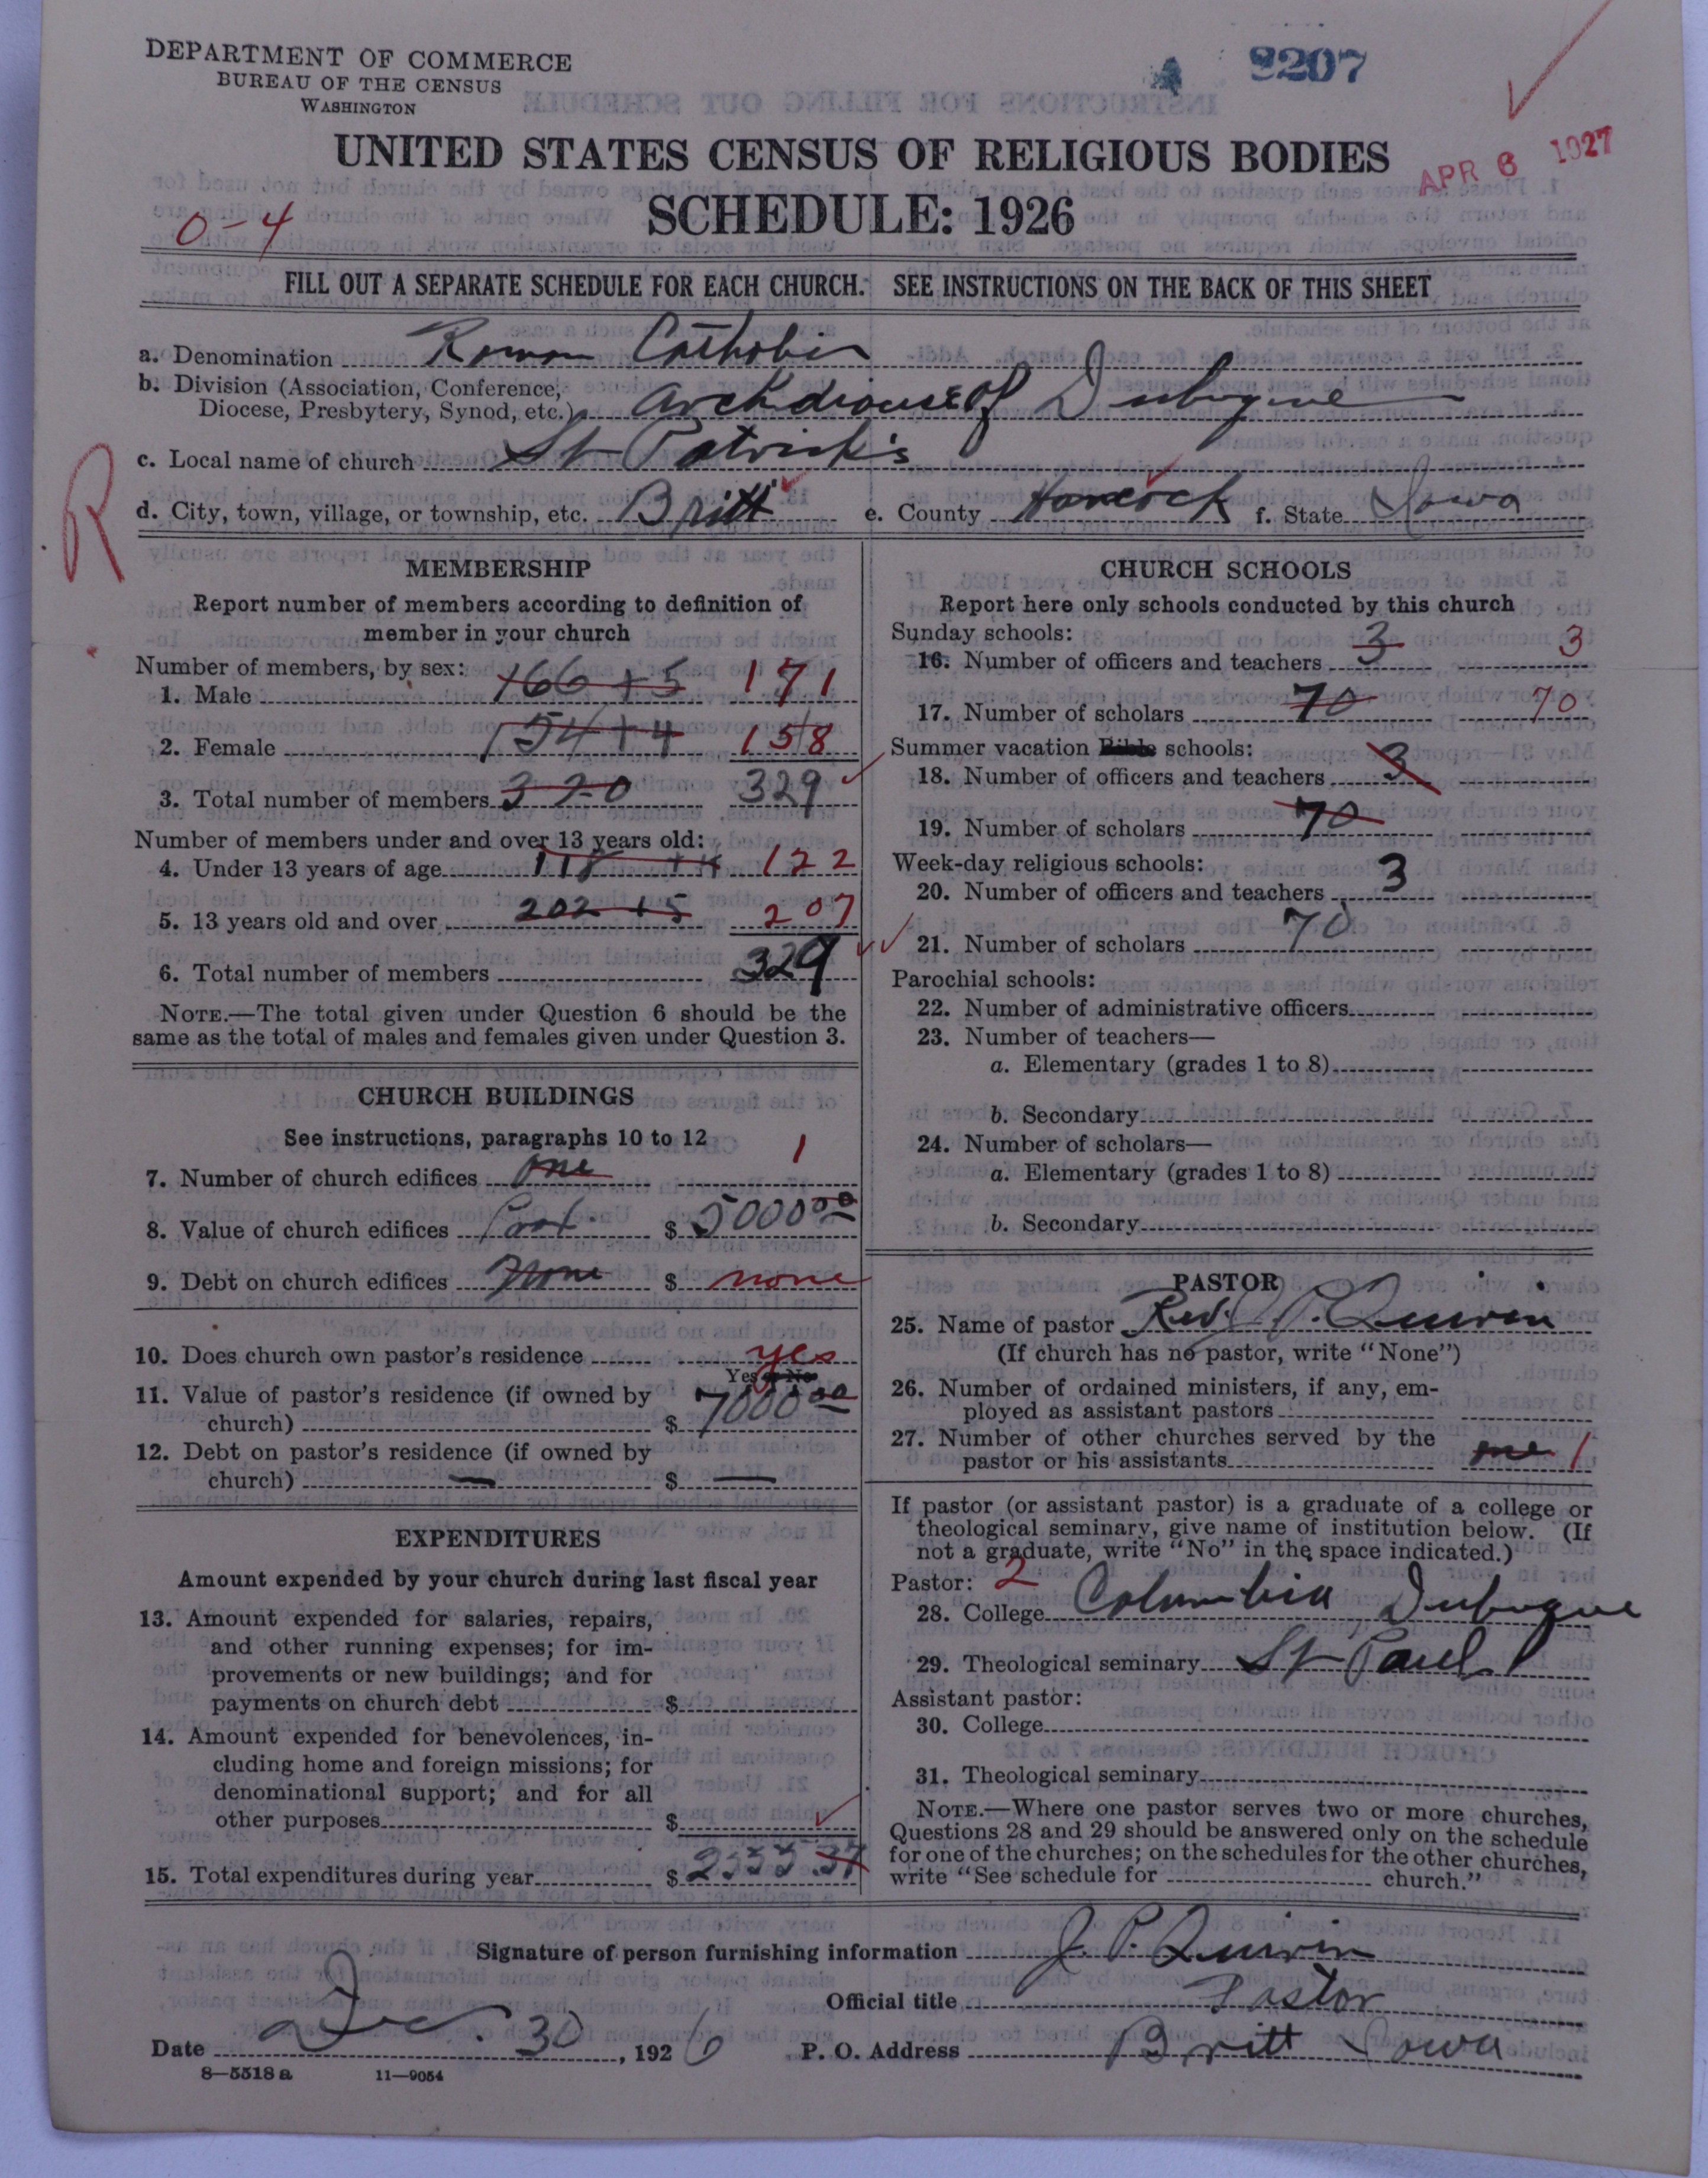 DEPARTMENT OF COMMERCE
BUREAU OF THE CENSUS
WASHINGTON
8207
UNITED STATES CENSUS OF RELIGIOUS BODIES
APR 6 1927
SCHEDULE: 1926
0-4
FILL OUT A SEPARATE SCHEDULE FOR EACH CHURCH. SEE INSTRUCTIONS ON THE BACK OF THIS SHEET
a. Denomination Roman Catholic
b. Division (Association, Conference, Diocese, Presbytery, Synod, etc.) Archdiocese of Dubuque
c. Local name of church St Patrick's
R
d. City, town, village, or township, etc. Britt e. County Hancock f. State Iowa
MEMBERSHIP
Report number of members according to definition of
member in your church
Number of members, by sex:
1. Male 166 + 5 171
2. Female 154 + 4 158
3. Total number of members 320 329
Number of members under and over 13 years old:
4. Under 13 years of age 118 + 4 122
5. 13 years old and over 202 + 5 207
6. Total number of members 329
NOTE.—The total given under Question 6 should be the
same as the total of males and females given under Question 3.
CHURCH BUILDINGS
See instructions, paragraphs 10 to 12
7. Number of church edifices one 1
8. Value of church edifices $ 5000 00
9. Debt on church edifices None $ none
10. Does church own pastor's residence yes
Yes or No
11. Value of pastor's residence (if owned by
church) $ 7000 00
12. Debt on pastor's residence (if owned by
church) — $ —
EXPENDITURES
Amount expended by your church during last fiscal year
13. Amount expended for salaries, repairs,
and other running expenses; for im-
provements or new buildings; and for
payments on church debt $
14. Amount expended for benevolences, in-
cluding home and foreign missions; for
denominational support; and for all
other purposes $
15. Total expenditures during year $
CHURCH SCHOOLS
Report here only schools conducted by this church
Sunday schools:
16. Number of officers and teachers 3 3
17. Number of scholars 70 70
Summer vacation Bible schools:
18. Number of officers and teachers 3
19. Number of scholars 70
Week-day religious schools:
20. Number of officers and teachers 3
21. Number of scholars 70
Parochial schools:
22. Number of administrative officers
23. Number of teachers—
a. Elementary (grades 1 to 8)
b. Secondary
24. Number of scholars—
a. Elementary (grades 1 to 8)
b. Secondary
PASTOR
25. Name of pastor Rev. J. P.
(If church has no pastor, write "None")
26. Number of ordained ministers, if any, em-
ployed as assistant pastors
27. Number of other churches served by the
pastor or his assistants one 1
If pastor (or assistant pastor) is a graduate of a college or
theological seminary, give name of institution below. (If
not a graduate, write "No" in the space indicated.)
Pastor: 2
28. College Columbia, Dubuque
29. Theological seminary St Paul
Assistant pastor:
30. College
31. Theological seminary
NOTE.—Where one pastor serves two or more churches,
Questions 28 and 29 should be answered only on the schedule
for one of the churches; on the schedules for the other churches,
write "See schedule for church."
Signature of person furnishing information J. P.
Official title Pastor
Date Dec. 30, 1926 P. O. Address Britt Iowa
8—5518 a 11—9054